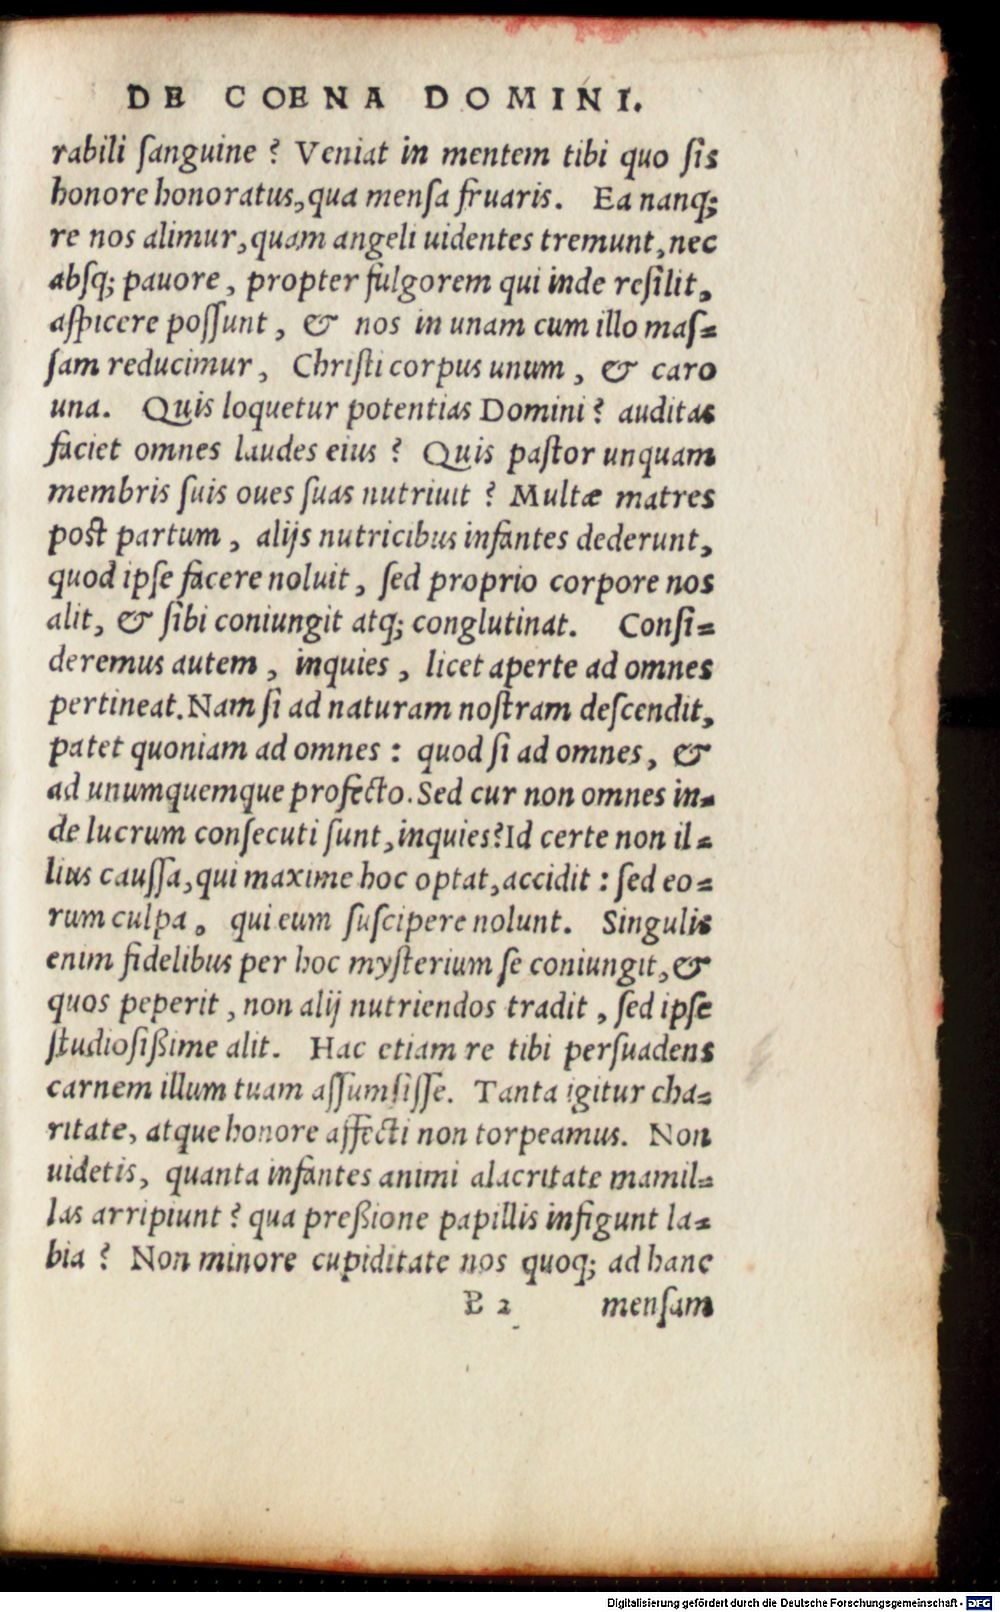 DE COENA DOMINI.
rabili ſanguine ? Veniat in mentem tibi quo ſis
honore honoratus, qua menſa fruaris. Ea nanq;
re nos alimur, quam angeli uidentes tremunt, nec
absq; pauore, propter fulgorem qui inde reſilit,
aſpicere poſſunt, & nos in unam cum illo maſ⸗
ſam reducimur, Chriſti corpus unum, & caro
una. Quis loquetur potentias Domini ? auditas
faciet omnes laudes eius ? Quis paſtor unquam
membris ſuis oues ſuas nutriuit ? Multæ matres
poſt partum, alijs nutricibus infantes dederunt,
quod ipſe facere noluit, ſed proprio corpore nos
alit, & ſibi coniungit atq; conglutinat. Conſi⸗
deremus autem, inquies, licet aperte ad omnes
pertineat. Nam ſi ad naturam noſtram deſcendit,
patet quoniam ad omnes : quod ſi ad omnes, &
ad unumquemque profecto. Sed cur non omnes in⸗
de lucrum conſecuti ſunt, inquies? Id certe non il⸗
lius cauſſa, qui maxime hoc optat, accidit : ſed eo⸗
rum culpa, qui eum ſuſcipere nolunt. Singulis
enim fidelibus per hoc myſterium ſe coniungit, &
quos peperit, non alij nutriendos tradit, ſed ipſe
ſtudioſißime alit. Hac etiam re tibi perſuadens
carnem illum tuam aſſumſiſſe. Tanta igitur cha⸗
ritate, atque honore affecti non torpeamus. Non
uidetis, quanta infantes animi alacritate mamil⸗
las arripiunt ? qua preßione papillis infigunt la⸗
bia ? Non minore cupiditate nos quoq; ad hanc
B 2 menſam
Digitalisierung gefördert durch die Deutsche Forschungsgemeinschaft - DFG